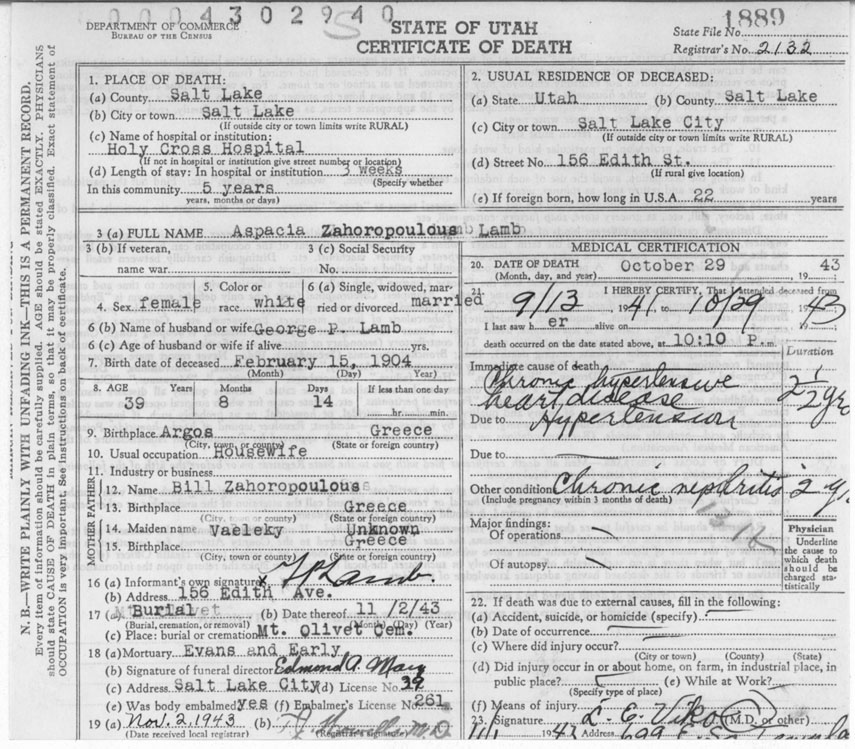 0004302940
1889
DEPARTMENT OF COMMERCE
BUREAU OF THE CENSUS
STATE OF UTAH
CERTIFICATE OF DEATH
State File No.
Registrar's No. 2132
N. B.—WRITE PLAINLY WITH UNFADING INK—THIS IS A PERMANENT RECORD.
Every item of information should be carefully supplied. AGE should be stated EXACTLY. PHYSICIANS
should state CAUSE OF DEATH in plain terms, so that it may be properly classified. Exact statement of
OCCUPATION is very important. See instructions on back of certificate.
1. PLACE OF DEATH:
(a) County Salt Lake
(b) City or town Salt Lake
(If outside city or town limits write RURAL)
(c) Name of hospital or institution:
Holy Cross Hospital
(If not in hospital or institution give street number or location)
(d) Length of stay: In hospital or institution 3 weeks
(Specify whether
In this community 5 years
years, months or days)
2. USUAL RESIDENCE OF DECEASED:
(a) State Utah (b) County Salt Lake
(c) City or town Salt Lake City
(If outside city or town limits write RURAL)
(d) Street No. 156 Edith St.
(If rural give location)
(e) If foreign born, how long in U.S.A. 22 years
3 (a) FULL NAME Aspacia Zahoropoulous Lamb
3 (b) If veteran,
name war
3 (c) Social Security
No.
4. Sex female
5. Color or
race white
6 (a) Single, widowed, mar-
ried or divorced married
6 (b) Name of husband or wife George P. Lamb
6 (c) Age of husband or wife if alive yrs.
7. Birth date of deceased February 15, 1904
(Month) (Day) (Year)
8. AGE Years Months Days If less than one day
39 8 14 hr. min.
9. Birthplace Argos Greece
(City, town, or county) (State or foreign country)
10. Usual occupation Housewife
11. Industry or business
FATHER
12. Name Bill Zahoropoulous
13. Birthplace Greece
(City, town or county) (State or foreign country)
MOTHER
14. Maiden name Vaeleky Unknown
15. Birthplace Greece
(City, town or county) (State or foreign country)
16 (a) Informant's own signature Lamb.
(b) Address 156 Edith Ave.
17 (a) Burial (b) Date thereof 11 /2/43
(Burial, cremation, or removal) (Month) (Day) (Year)
(c) Place: burial or cremation Mt. Olivet Cem.
18 (a) Mortuary Evans and Early
(b) Signature of funeral director Edmond A.
(c) Address Salt Lake City (d) License No. 39
(e) Was body embalmed yes (f) Embalmer's License No. 261
19 (a) Nov. 2, 1943 (b) M.D.
(Date received local registrar) (Registrar's signature)
MEDICAL CERTIFICATION
20. DATE OF DEATH October 29 1943
(Month, day, and year)
21. I HEREBY CERTIFY, That I attended deceased from
9/13, 1941, to 10/29 1943
I last saw her alive on 19
death occurred on the date stated above, at 10:10 P.m.
Duration
Immediate cause of death
Chronic hypertensive
heart disease 2 1/2 yrs
Due to Hypertension
Due to
Other condition Chronic nephritis 2 y
(Include pregnancy within 3 months of death)
Major findings:
Of operations
Of autopsy
Physician
Underline
the cause to
which death
should be
charged sta-
tistically
22. If death was due to external causes, fill in the following:
(a) Accident, suicide, or homicide (specify)
(b) Date of occurrence
(c) Where did injury occur?
(City or town) (County) (State)
(d) Did injury occur in or about home, on farm, in industrial place, in
public place? (e) While at Work?
(Specify type of place)
(f) Means of injury
23. Signature L. E. Viko (M.D. or other)
Address 699